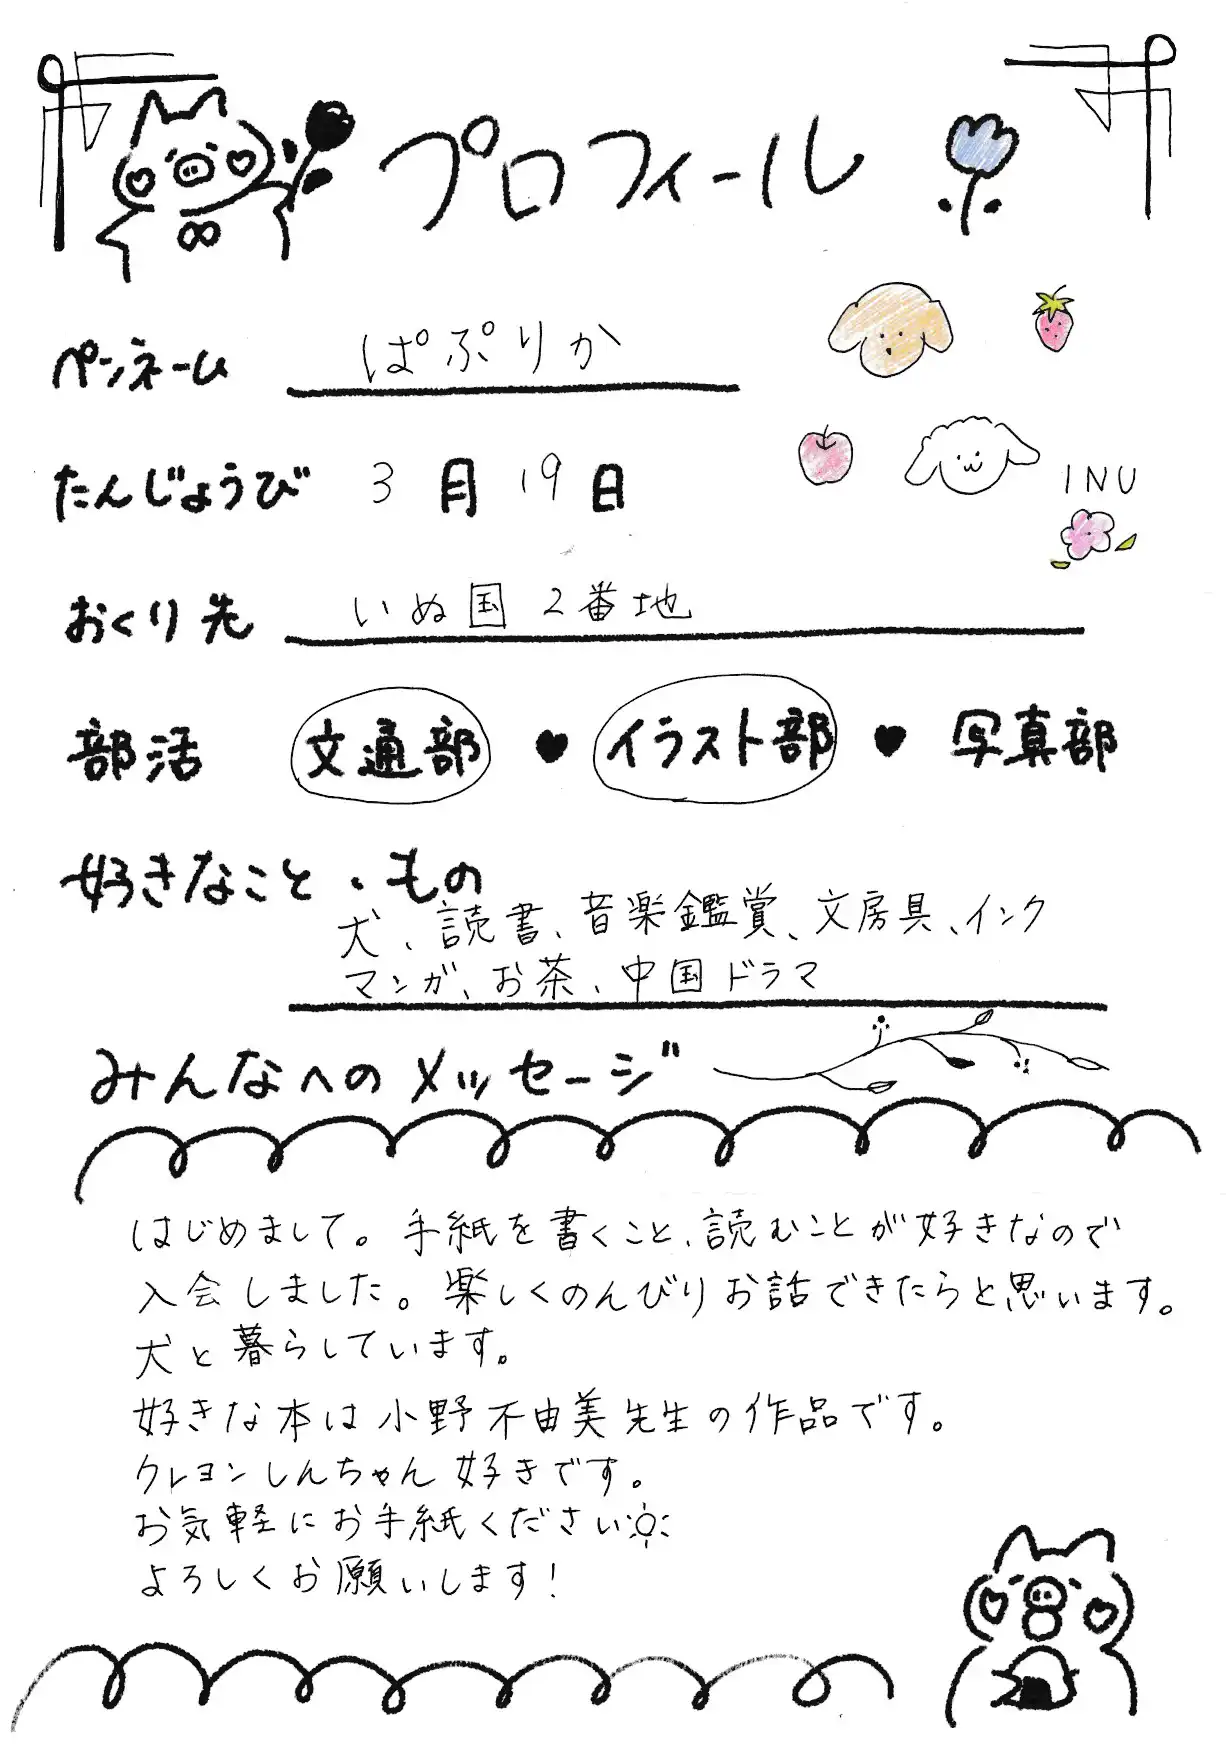 プロフィール
ペンネーム ぱぷりか
たんじょうび 3月19日
INU
おくり先 いぬ国2番地
部活 文通部 ♥ イラスト部 ♥ 写真部
好きなこと・もの
犬、読書、音楽鑑賞、文房具、インク
マンガ、お茶、中国ドラマ
みんなへのメッセージ
はじめまして。手紙を書くこと、読むことが好きなので
入会しました。楽しくのんびりお話できたらと思います。
犬と暮らしています。
好きな本は小野不由美先生の作品です。
クレヨンしんちゃん好きです。
お気軽にお手紙ください
よろしくお願いします!